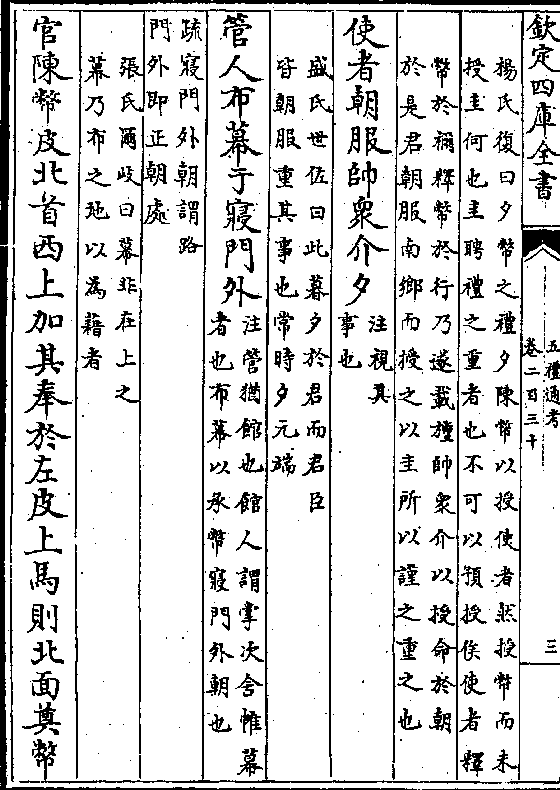 欽定四庫全書
五禮通考
卷二百三十
三
楊氏復曰夕幣之禮夕陳幣以授使者然授幣而未
授圭何也圭聘禮之重者也不可以預授俟使者釋
幣於禰釋幣於行乃遂載旜帥衆介以授命於朝
於是君朝服南鄉而授之以圭所以謹之重之也
使者朝服帥衆介夕
注視其
事也
盛氏世佐曰此暮夕於君而君臣
皆朝服重其事也常時夕元端
管人布幕于寢門外
注管猶館也館人謂掌次舍帷幕
者也布幕以承幣寢門外朝也
疏寢門外朝謂路
門外即正朝處
張氏爾岐曰幕非在上之
幕乃布之地以為藉者
官陳幣皮北首西上加其奉於左皮上馬則北面奠幣